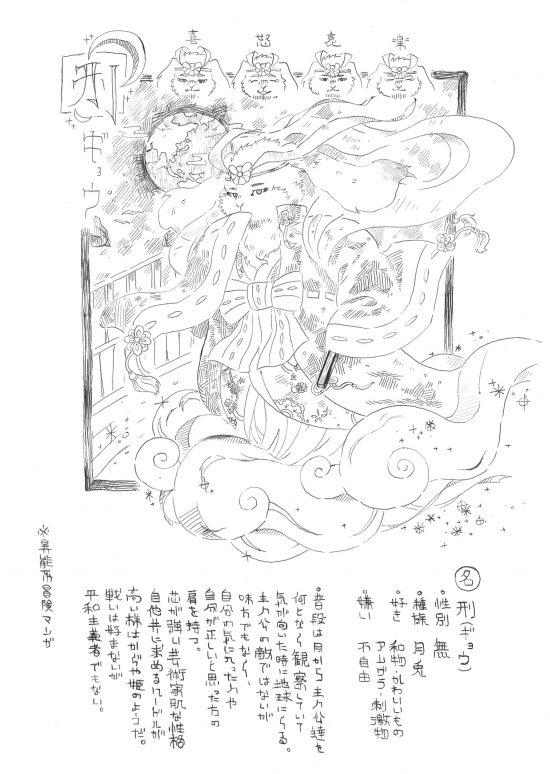 喜
怒
哀
楽
刑
ギョウ
名 刑(ギョウ)
・性別 無
・種族 月兎
・好き 和物・かわいいもの
アムヴラ・刺激物
・嫌い 不自由
・普段は月から主人公達を
何となく観察していて
気が向いた時に地球にくる。
主人公の敵ではないが
味方でもなく、
自分の気に入った人や
自分が正しいと思った方の
肩を持つ。
芯が強い芸術家肌な性格
自他共に求めるハードルが
高い様はかぐや姫のようだ。
戦いは好まないが
平和主義者でもない。
※異能系冒険マンガ